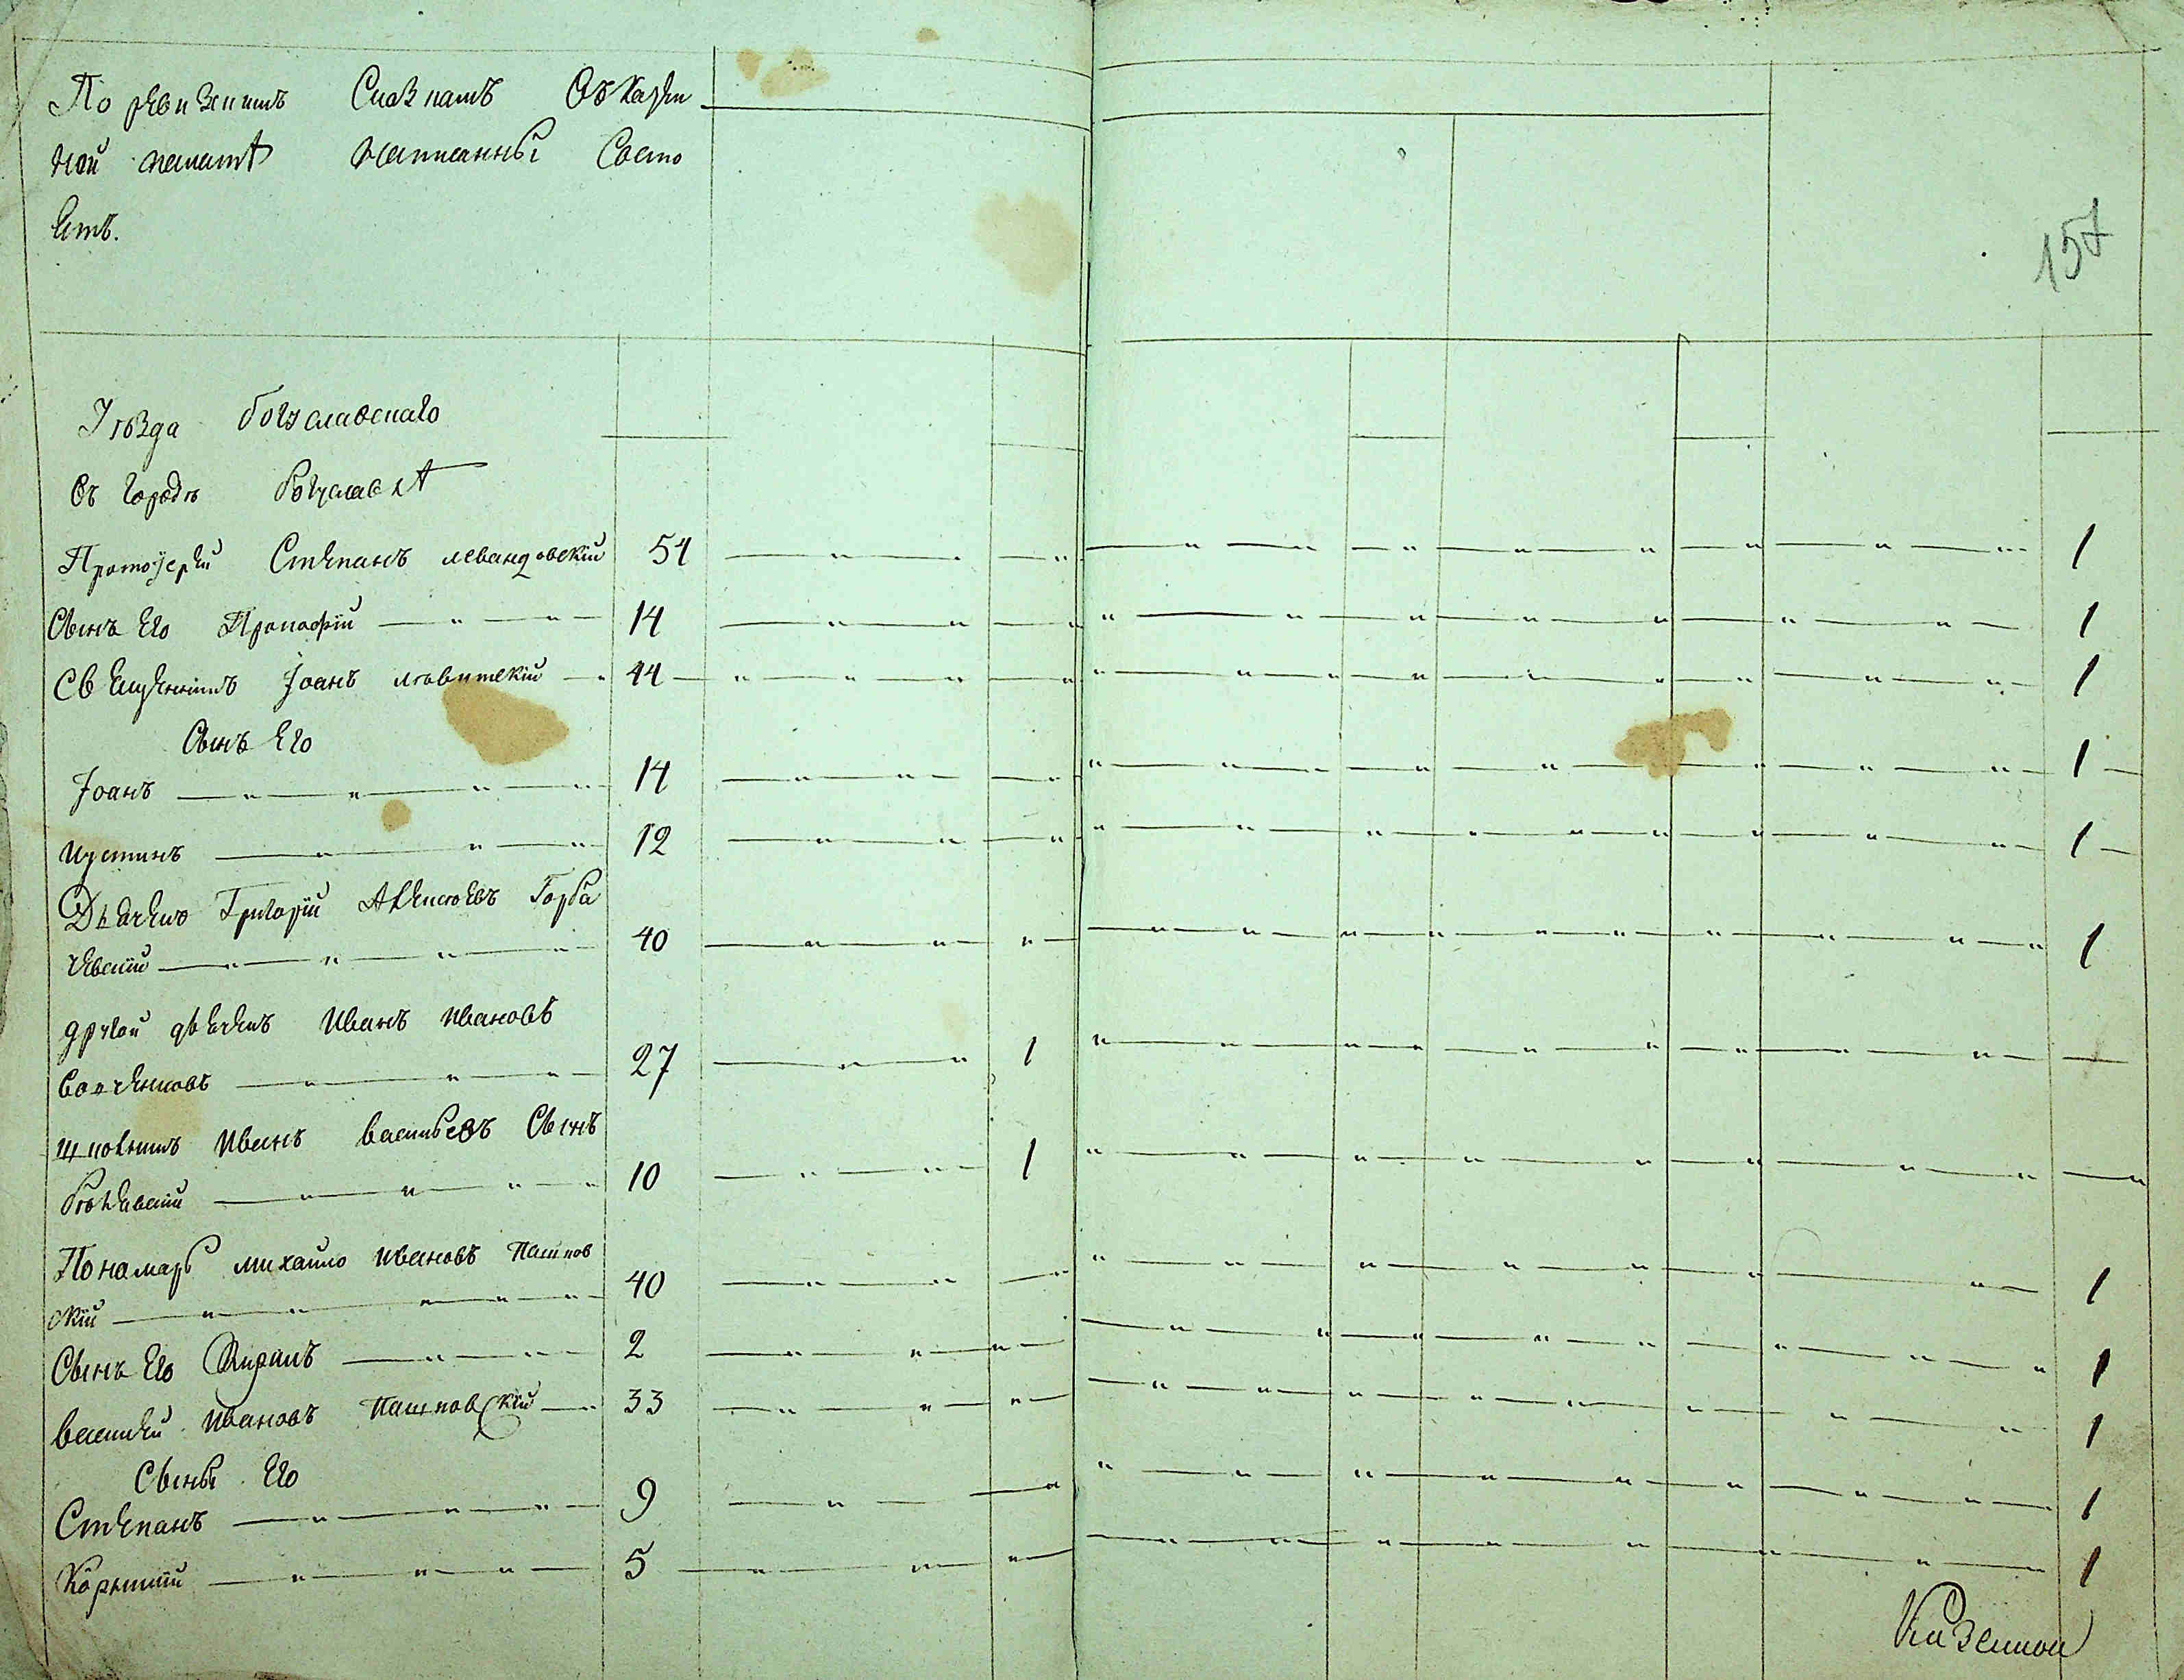 По ревизкимъ Сказкамъ Въ казен
ной палатѣ написанные Состо
Етъ.
157
Уѣзда богуславскаго
Въ городѣ богуславлѣ
Протоіерей Степанъ левандовскій 54 1
Сынъ Его Прокофій 14 1
Священникъ Іоанъ лѣвитскій 44 1
Сынъ Его
Іоанъ 14 1
Иустинъ 12 1
Дьячекъ Григорій Алексѣевъ Горба
чевскій 40 1
другой дьячекъ Иванъ Ивановъ
27 1
Иванъ васильевъ Сынъ
10 1
Пономарь михайло Ивановъ Пашков
скій 40 1
Сынъ Его Кирилъ 2 1
василей Ивановъ Пашковскій 33 1
Сыны Его
Степанъ 9 1
Корнилій 5 1
Казенной